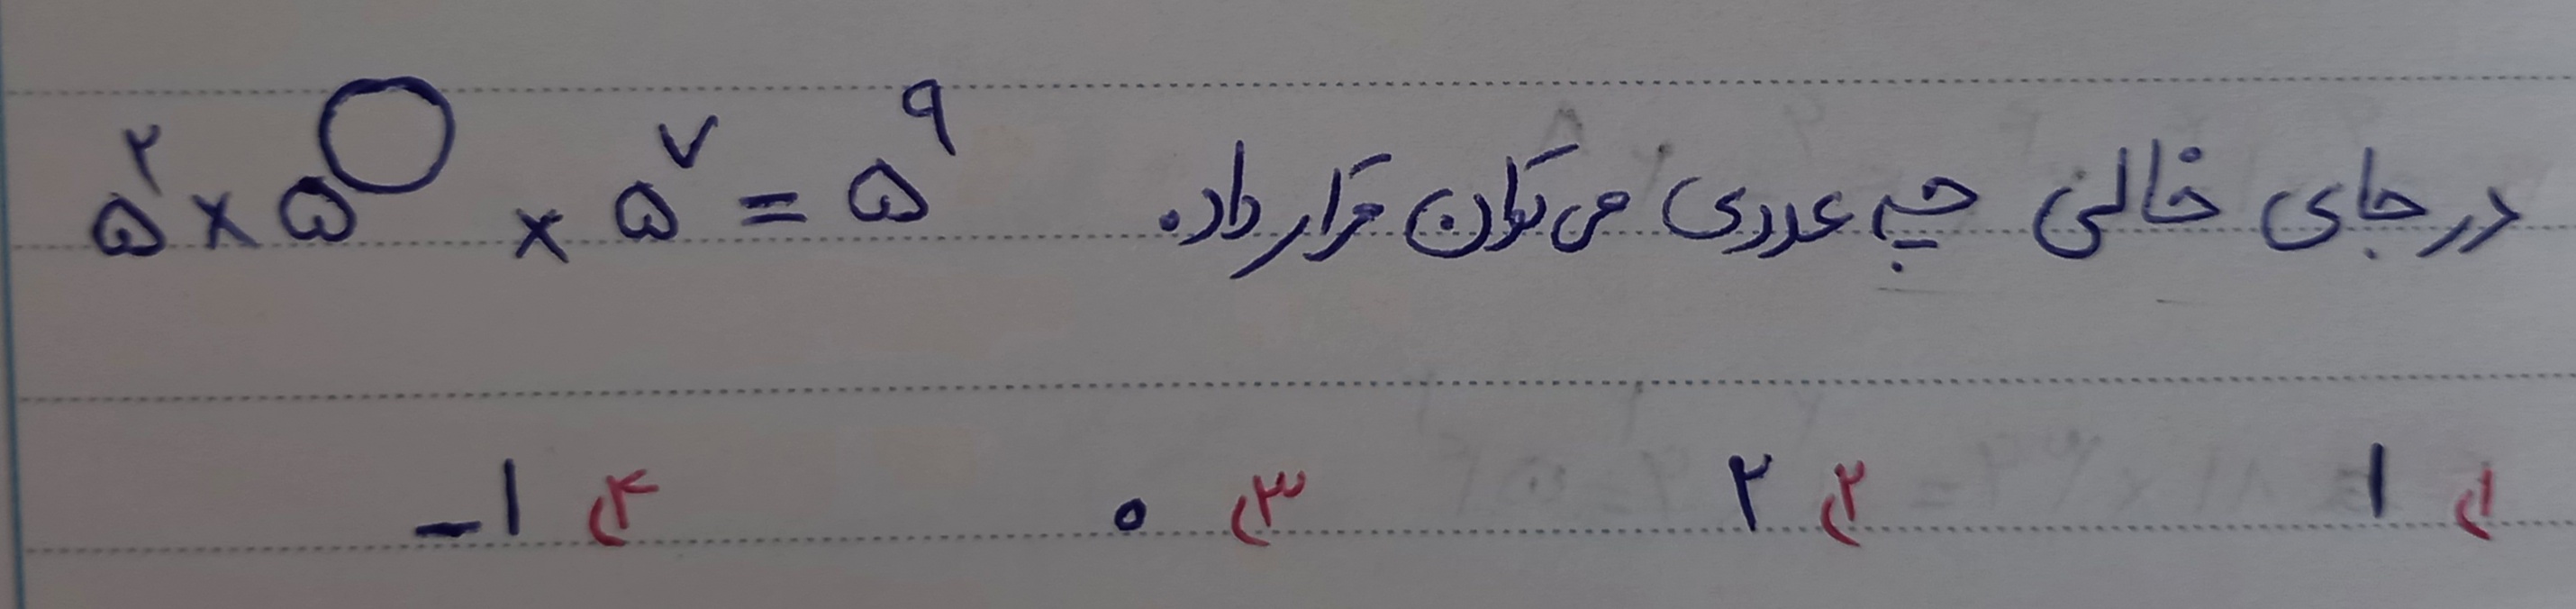 در جای خالی چه عددی می‌توان قرار داد. ۵^۲ × ۵^○ × ۵^۷ = ۵^۹
۱) ۱ ۲) ۲ ۳) ۰ ۴) -۱